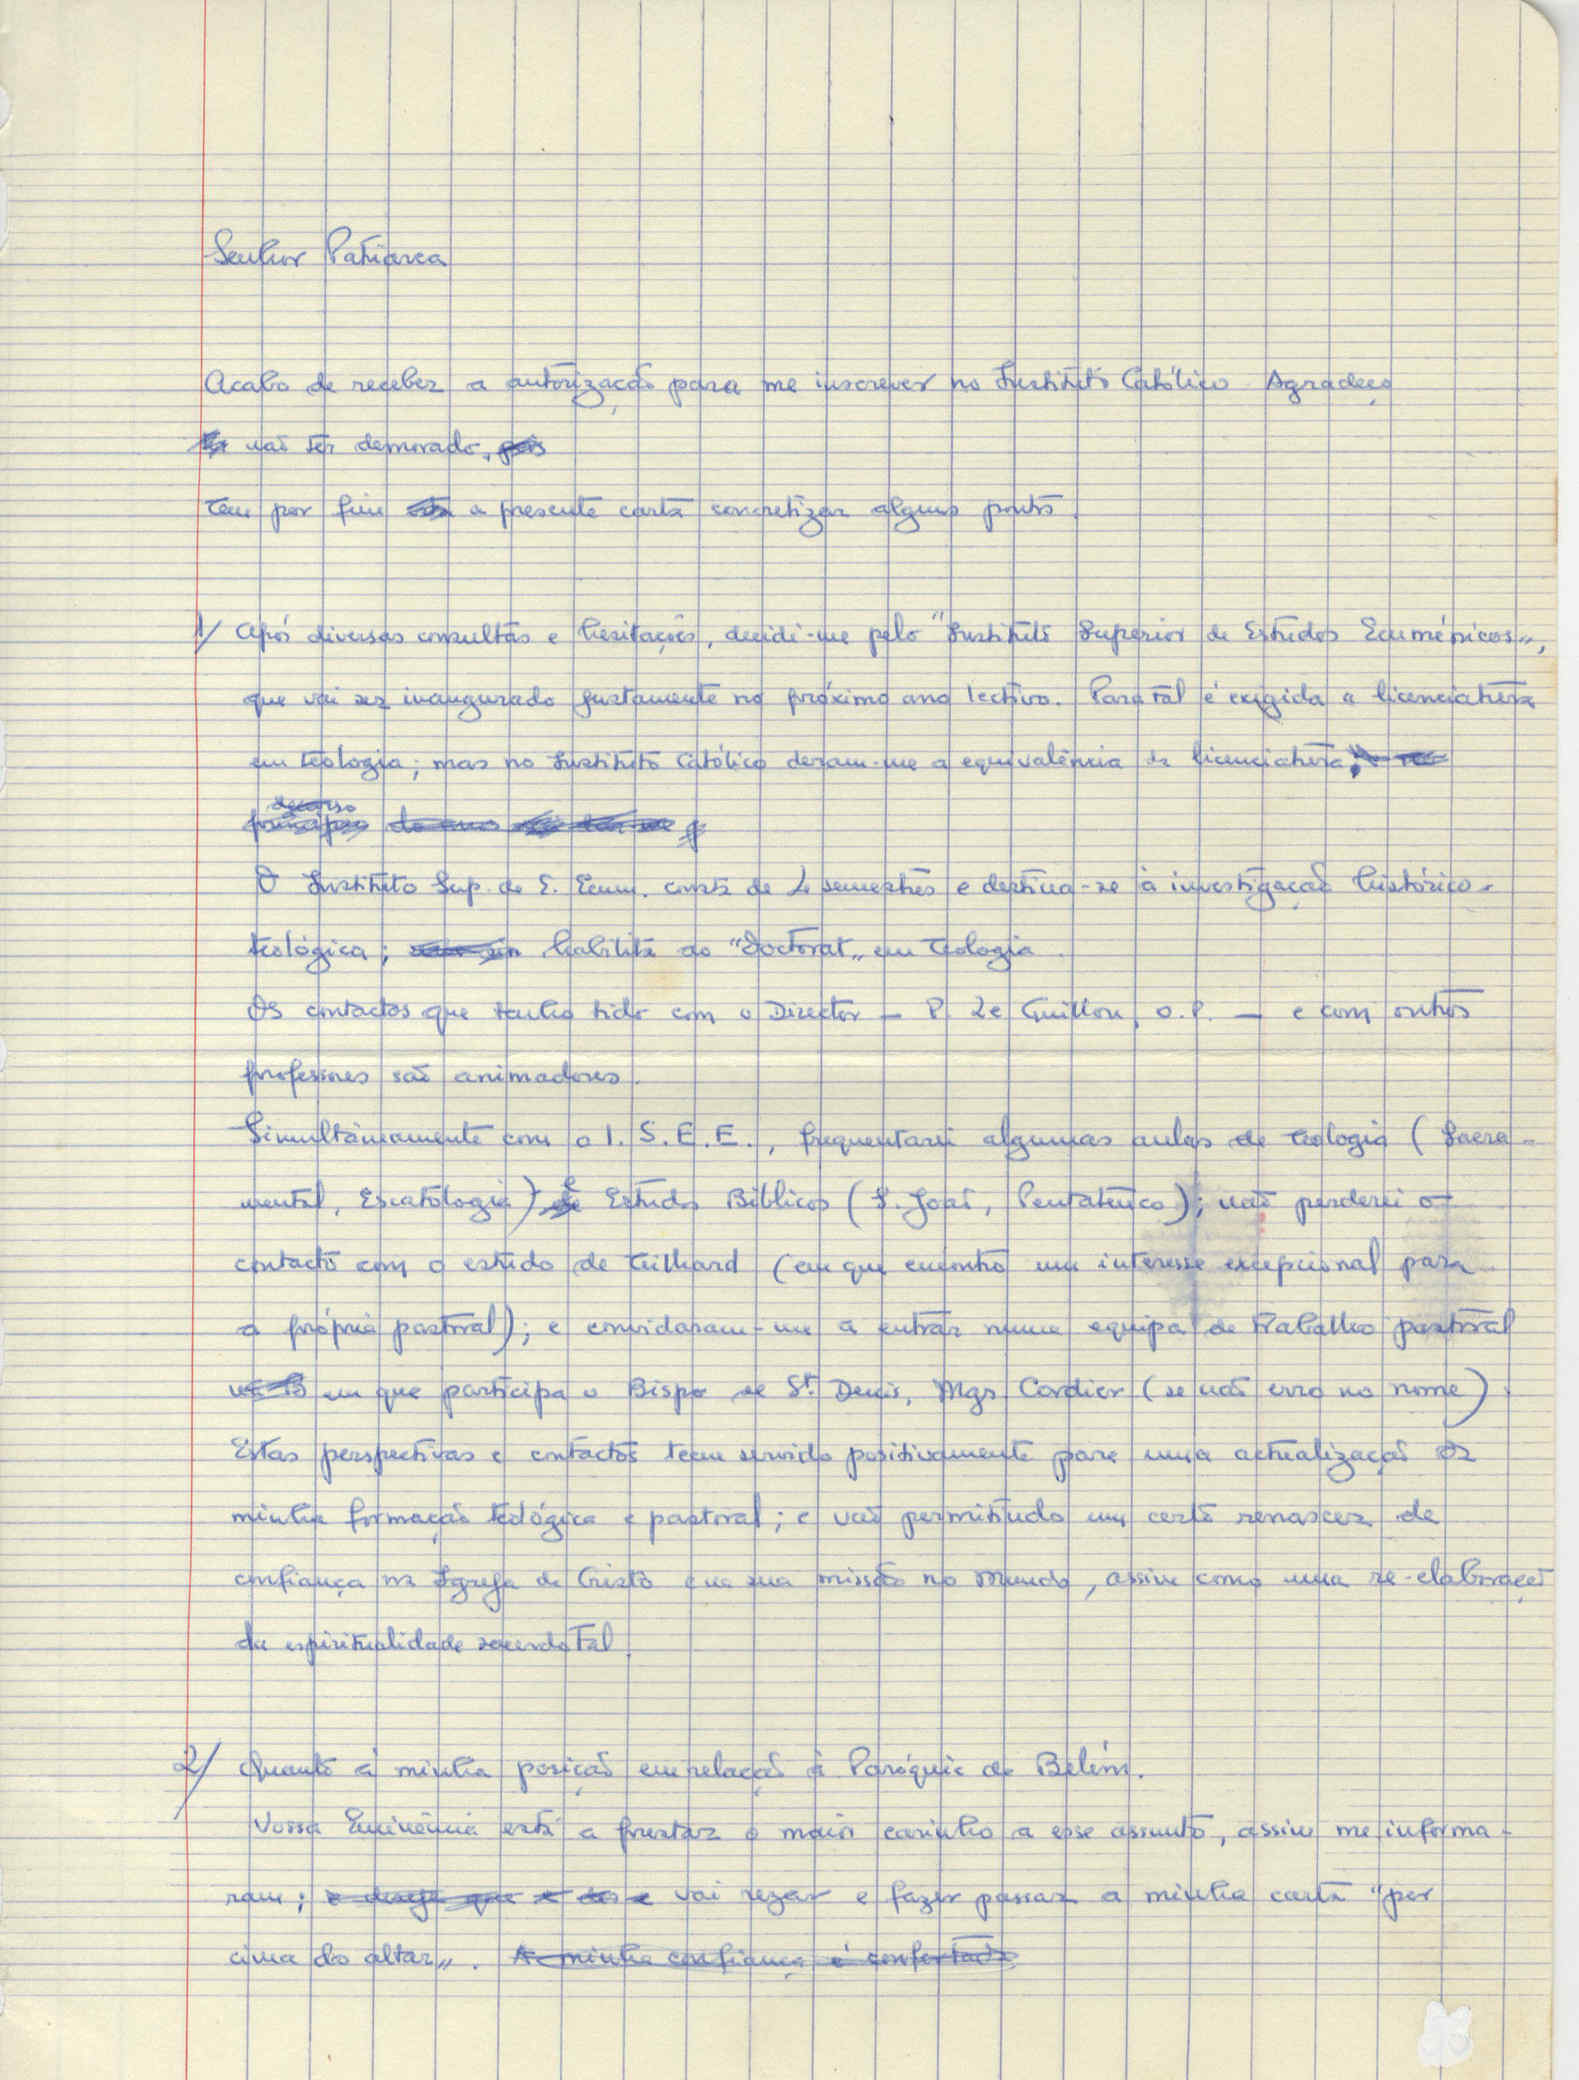 Senhor Patriarca
Acabo de receber a autorização para me inscrever no Instituto Católico. Agradeço
não ter demorado.
Tem por fim a presente carta concretizar alguns pontos.
1/ Após diversas consultas e hesitações, decidi-me pelo "Instituto Superior de Estudos Ecuménicos",
que vai ser inaugurado justamente no próximo ano lectivo. Para tal é exigida a licenciatura
em teologia; mas no Instituto Católico deram-me a equivalência da licenciatura;
decorso
do ano
O Instituto Sup. de E. Ecum. consta de 4 semestres e destina-se à investigação histórico-
teológica; habilita ao "Doctorat" em Teologia.
Os contactos que tenho tido com o Director — P. Le Guillou, o.p. — e com outros
professores são animadores.
Simultâneamente com o I.S.E.E., frequentarei algumas aulas de teologia (Sacra-
mental, Escatologia) e Estudos Bíblicos (S. João, Pentateuco); não perderei o
contacto com o estudo de Teilhard (em que encontro um interesse excepcional para
a própria pastoral); e convidaram-me a entrar numa equipa de trabalho pastoral
em que participa o Bispo de St. Denis, Mgr Cordier (se não erro no nome).
Estas perspectivas e contactos teem servido positivamente para uma actualização da
minha formação teológica e pastoral; e vão permitindo um certo renascer de
confiança na Igreja de Cristo e na sua missão no mundo, assim como uma re-elaboração
da espiritualidade sacerdotal.
2/ Quanto à minha posição em relação à Paróquia de Belém.
Vossa Eminência está a prestar o maior carinho a esse assunto, assim me informa-
ram; e deseja que vai rezar e fazer passar a minha carta "por
cima do altar". A minha confiança é confortada